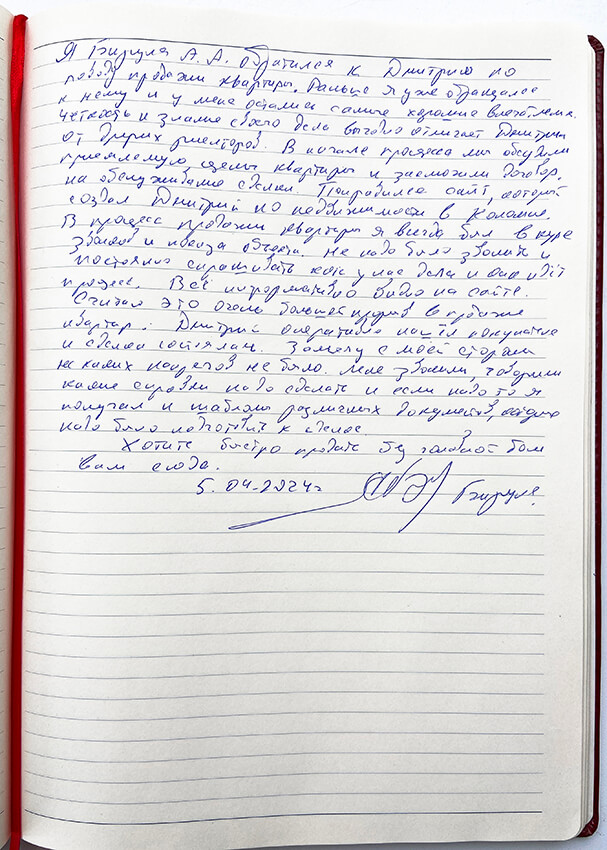 Я Бизуля А. А. обратился к Дмитрию по
поводу продажи квартиры. Раньше я уже обращался
к нему и у меня остались самые хорошие впечатления.
Четкость и знание своего дела выгодно отличает Дмитрия
от других риелторов. В начале процесса мы обсудили
приемлемую цену квартиры и заключили договор
на обслуживание сделки. Понравился сайт, который
создал Дмитрий по недвижимости в Коломне.
В процессе продажи квартиры я всегда был в курсе
звонков и показа объекта. Не надо было звонить и
постоянно спрашивать как у нас дела и как идёт
процесс. Всё информативно видно на сайте.
Считаю это очень большой плюс в продаже
квартир. Дмитрий оперативно нашёл покупателя
и сделка состоялась. Замечу с моей стороны
никаких напрягов не было. Мне звонили, говорили
какие справки надо сделать и если надо то я
получал и шаблоны различных документов, которые
надо было подготовить к сделке.
Хотите быстро продать без головной боли
Вам сюда.
5.04.2024г